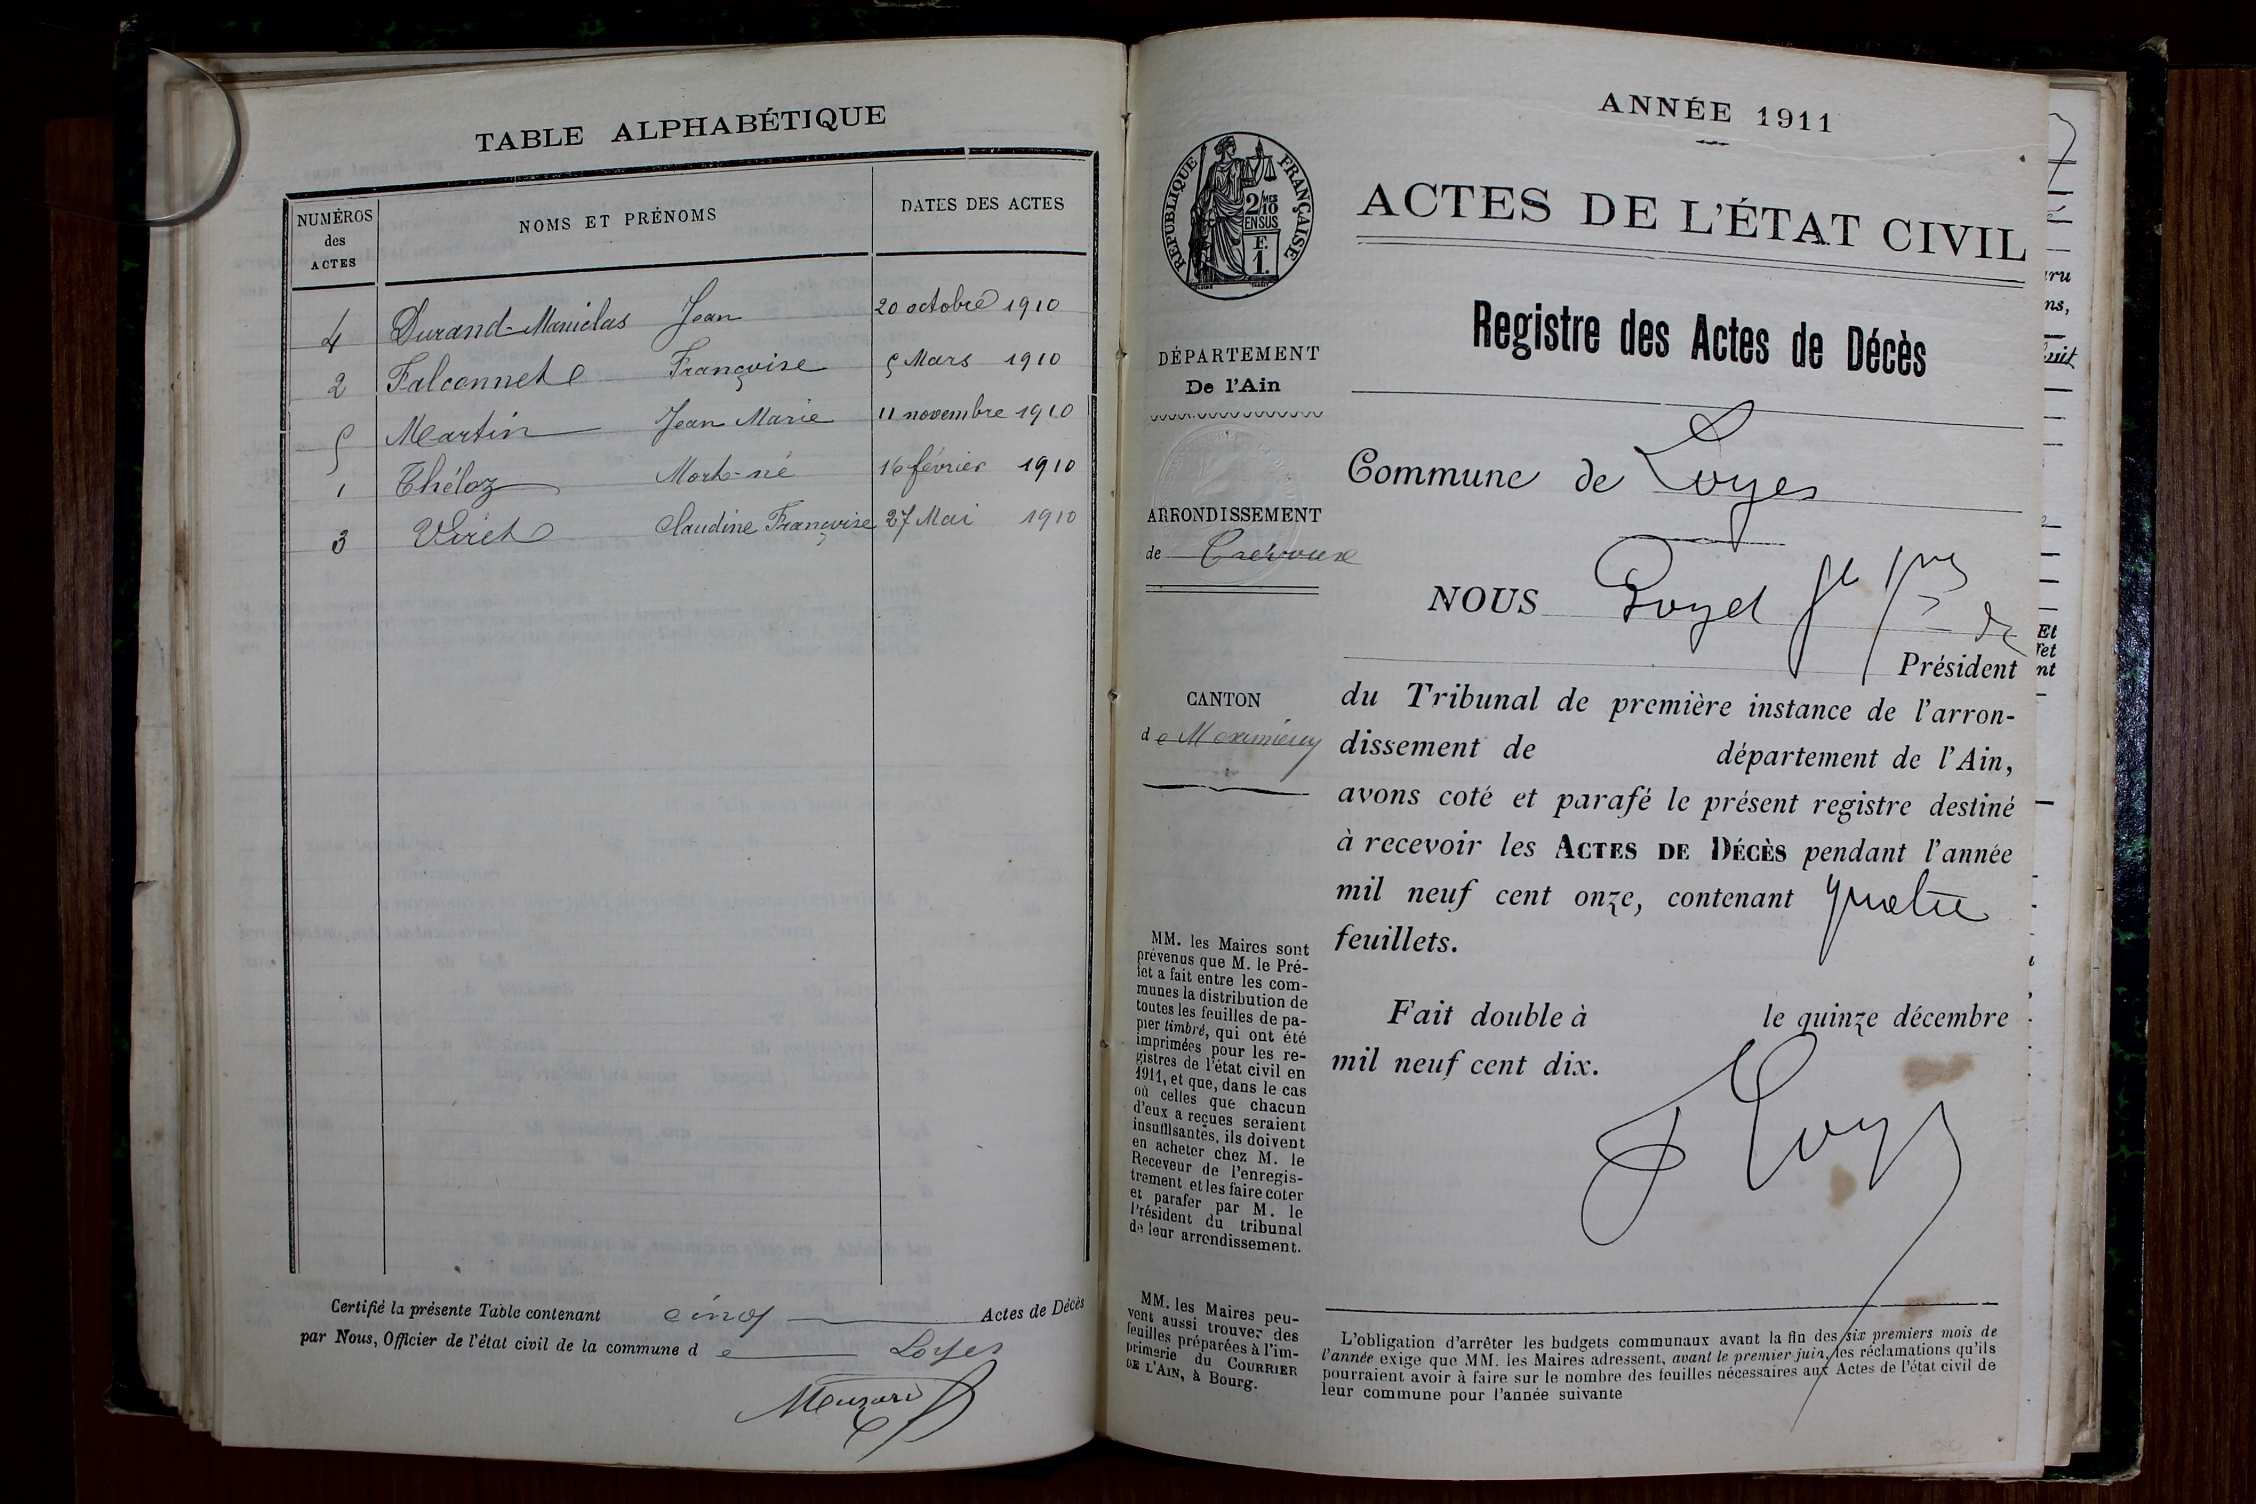 TABLE ALPHABÉTIQUE
NUMÉROS
des
ACTES
NOMS ET PRÉNOMS
DATES DES ACTES
4 Durand-Maniclas Jean 20 octobre 1910
2 Falconnet Françoise 5 Mars 1910
5 Martin Jean Marie 11 novembre 1910
1 Théloz Mort-né 16 février 1910
3 Viret Claudine Françoise 27 Mai 1910
Certifié la présente Table contenant cinq Actes de Décès
par Nous, Officier de l'état civil de la commune de Loyes
ANNÉE 1911
RÉPUBLIQUE FRANÇAISE
2/10 MES
EN SUS
F.
1.
ACTES DE L'ÉTAT CIVIL
Registre des Actes de Décès
DÉPARTEMENT
De l'Ain
ARRONDISSEMENT
de Trévoux
CANTON
de Meximieux
MM. les Maires sont
prévenus que M. le Pré-
fet a fait entre les com-
munes la distribution de
toutes les feuilles de pa-
pier timbré, qui ont été
imprimées pour les re-
gistres de l'état civil en
1911, et que, dans le cas
où celles que chacun
d'eux a reçues seraient
insuffisantes, ils doivent
en acheter chez M. le
Receveur de l'enregis-
trement et les faire coter
et parafer par M. le
Président du tribunal
de leur arrondissement.
MM. les Maires peu-
vent aussi trouver des
feuilles préparées à l'im-
primerie du COURRIER
DE L'AIN, à Bourg.
Commune de Loyes
NOUS
Président
du Tribunal de première instance de l'arron-
dissement de département de l'Ain,
avons coté et parafé le présent registre destiné
à recevoir les ACTES DE DÉCÈS pendant l'année
mil neuf cent onze, contenant quatre
feuillets.
Fait double à le quinze décembre
mil neuf cent dix.
L'obligation d'arrêter les budgets communaux avant la fin des six premiers mois de
l'année exige que MM. les Maires adressent, avant le premier juin, les réclamations qu'ils
pourraient avoir à faire sur le nombre des feuilles nécessaires aux Actes de l'état civil de
leur commune pour l'année suivante